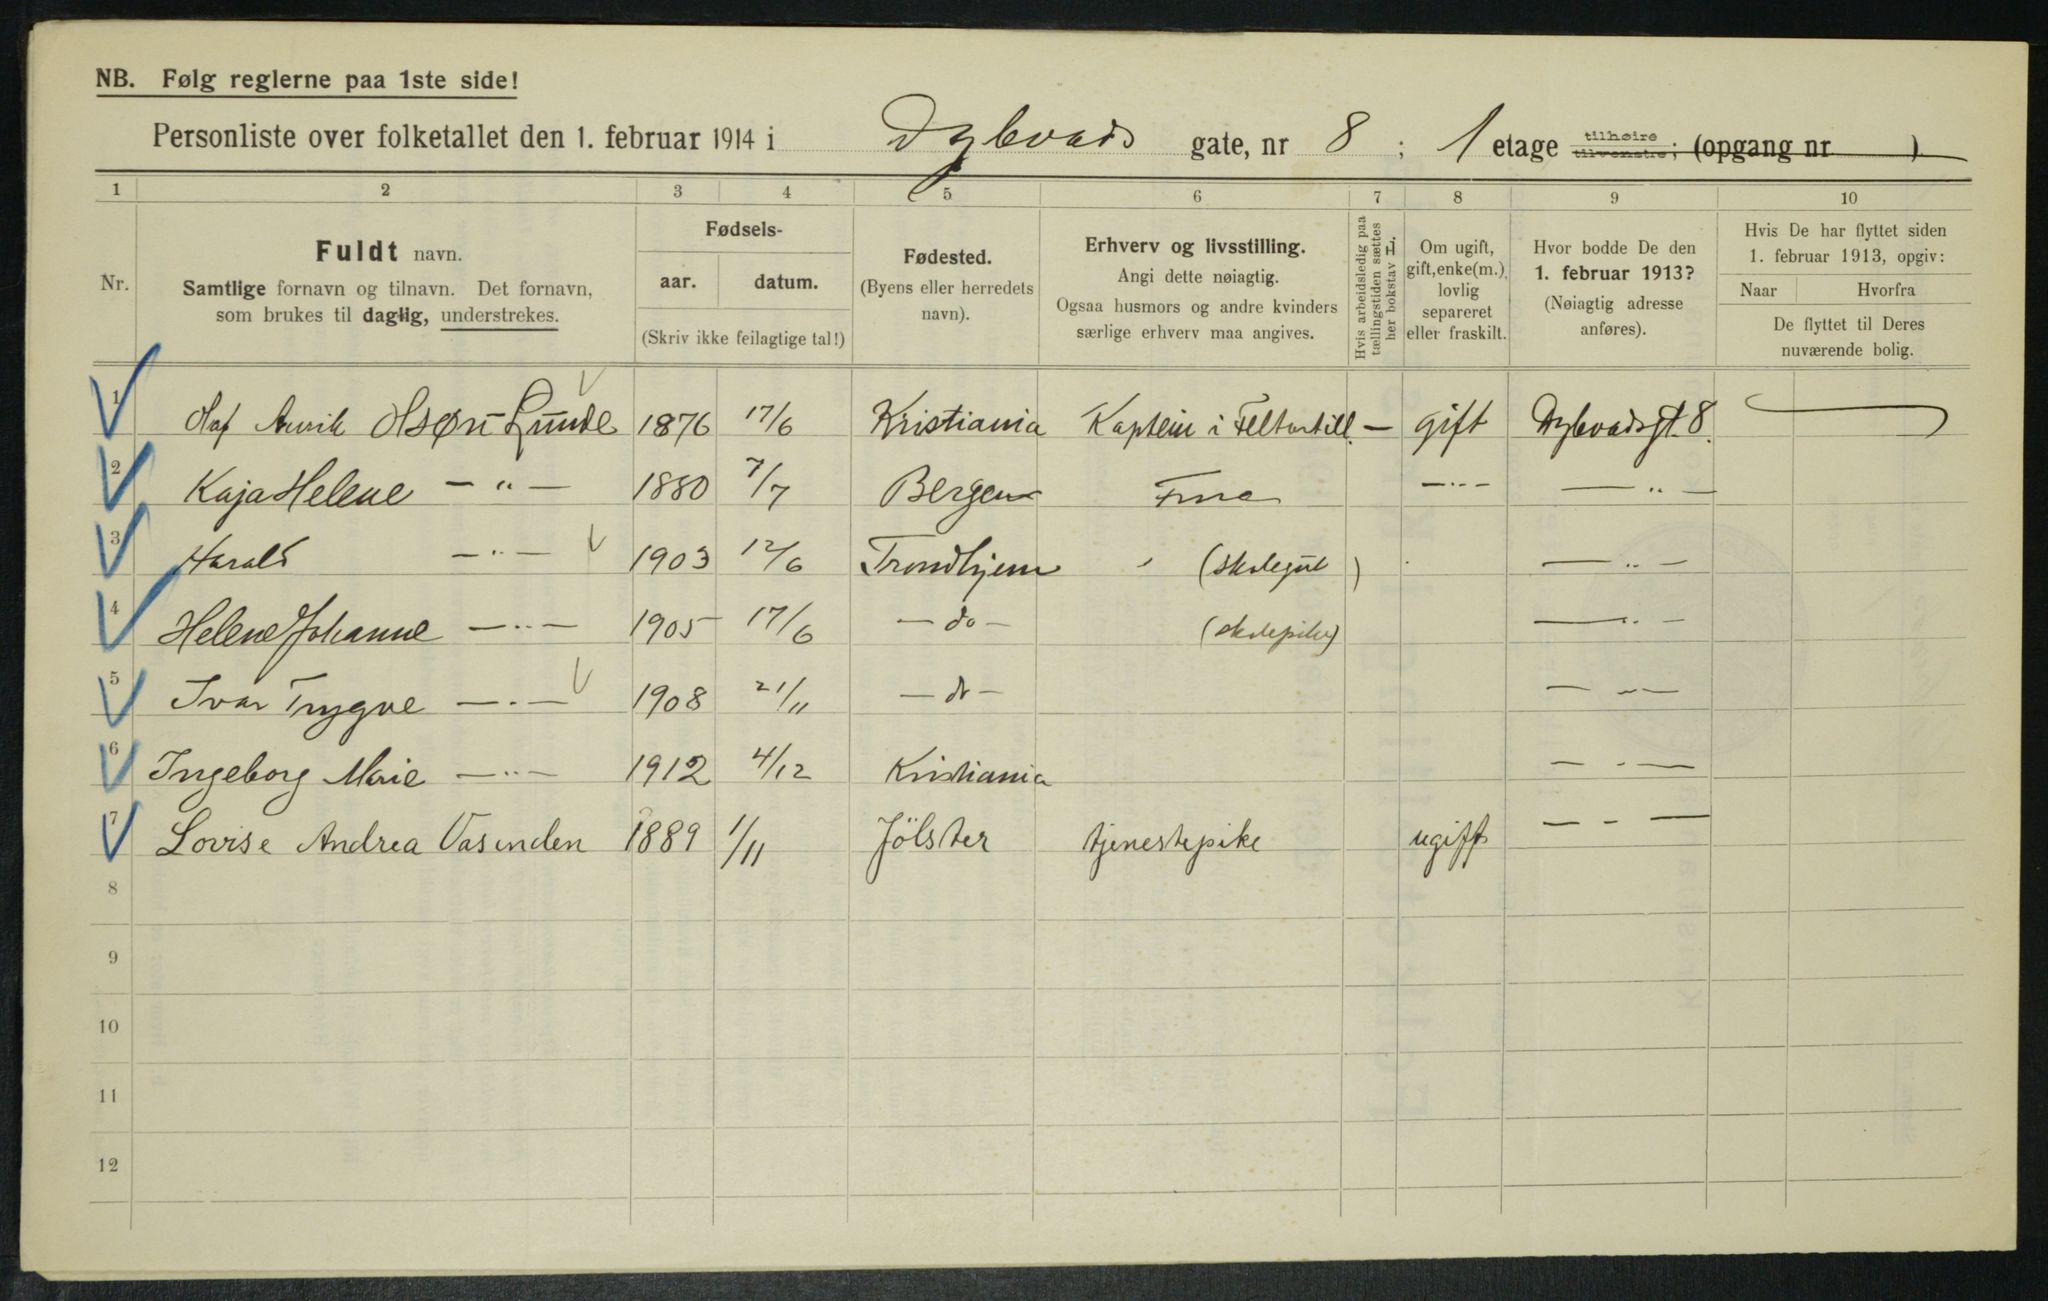 NB. Følg reglerne paa 1ste side!
Personliste over folketallet den 1. februar 1914 i Dybvads gate, nr 8 ; 1 etage tilhøire tilvenstre; (opgang nr )
1 2 3 4 5 6 7 8 9 10
Nr.
Fuldt navn.
Samtlige fornavn og tilnavn. Det fornavn,
som brukes til daglig, understrekes.
Fødsels-
aar. datum.
(Skriv ikke feilagtige tal!)
Fødested.
(Byens eller herredets
navn).
Erhverv og livsstilling.
Angi dette nøiagtig.
Ogsaa husmors og andre kvinders
særlige erhverv maa angives.
Hvis arbeidsledig paa
tællingstiden sættes
her bokstav H.
Om ugift,
gift, enke(m.),
lovlig
separeret
eller fraskilt.
Hvor bodde De den
1. februar 1913?
(Nøiagtig adresse
anføres).
Hvis De har flyttet siden
1. februar 1913, opgiv:
Naar Hvorfra
De flyttet til Deres
nuværende bolig.
1 Olaf Lunde 1876 17/6 Kristiania Kaptein i Feltartill. — gift Dybvadsgt. 8.
2 Kaja Helene — " — 1880 7/7 Bergen Frue — " — — " —
3 Harald — " — 1903 12/6 Trondhjem (skolegut) — " —
4 Helene Johanne — " — 1905 17/6 — do — (skolepike) — " —
5 Ivar Trygve — " — 1908 21/11 — do — — " —
6 Ingeborg Marie — " — 1912 4/12 Kristiania — " —
7 Lovise Andrea Vasenden 1889 1/11 Jölster tjenestepike ugift — " —
8
9
10
11
12